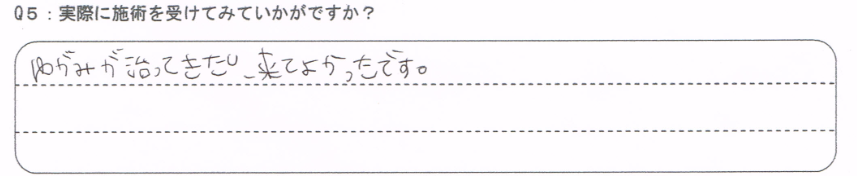 Q5：実際に施術を受けてみていかがですか？
ゆがみが治ってきたし、来てよかったです。